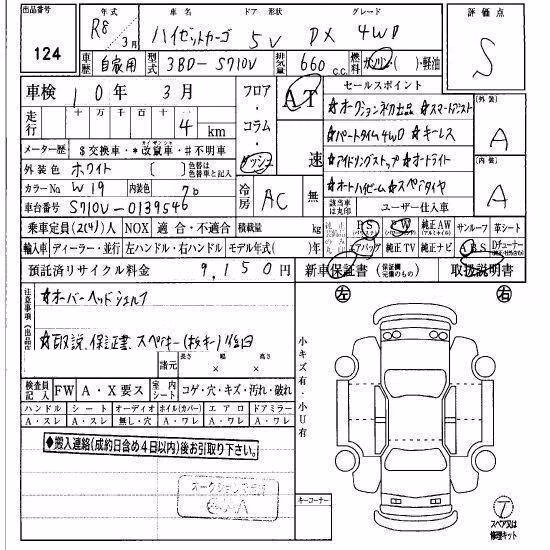 出品番号 年式 車名 ドア 形状 グレード 評価点
124 R8年3月 ハイゼットカーゴ 5V DX 4WD S
車歴 自家用 型式 3BD-S710V 排気量 660 c.c. 燃料 ガソリン・( )・軽油
車検 10年 3月 フロア・コラム・ダッシュ AT 速 セールスポイント
走行 十万 万 千 百 十 4 km
☆オークション初出品 ☆スマートアシスト
☆パートタイム4WD ☆キーレス
メーター歴 $交換車・*改ザン車・#不明車
☆アイドリングストップ ☆オートライト
外装色 ホワイト ( ) 色替は色替車と記入
☆オートハイビーム ☆スペアタイヤ
外装 A
内装 A
カラーNo W19 内装色 70 冷房 AC 無
該当車は丸印 ユーザー仕入車
車台番号 S710V-0139546
乗車定員 2(4)人 NOX 適合・不適合 積載量 kg
PS PW 純正AW (アルミホイル) サンルーフ 革シート
輸入車 ディーラー・並行 左ハンドル・右ハンドル モデル年式( )年
エアバッグ 純正TV 純正ナビ ABS
預託済リサイクル料金 9,150円 新車保証書 (保証欄元価のもの) 取扱説明書
注意事項(出品店)
☆オーバーヘッドシェルフ
☆取説、保証書、スペアキー(板キー)後日
左 右
諸元 長さ × 幅 × 高さ
小キズ有・小U有
検査員記入 FW A・X要ス 室内シート コゲ・穴・キズ・汚れ・破れ
ハンドル シート オーディオ ホイル(カバー) エアロ ドアミラー
A・スレ A・スレ 無し・穴 A・ワレ A・ワレ A・ワレ
◆搬入連絡(成約日含め4日以内)後お引取り下さい。
キーコーナー
T
スペア又は修理キット